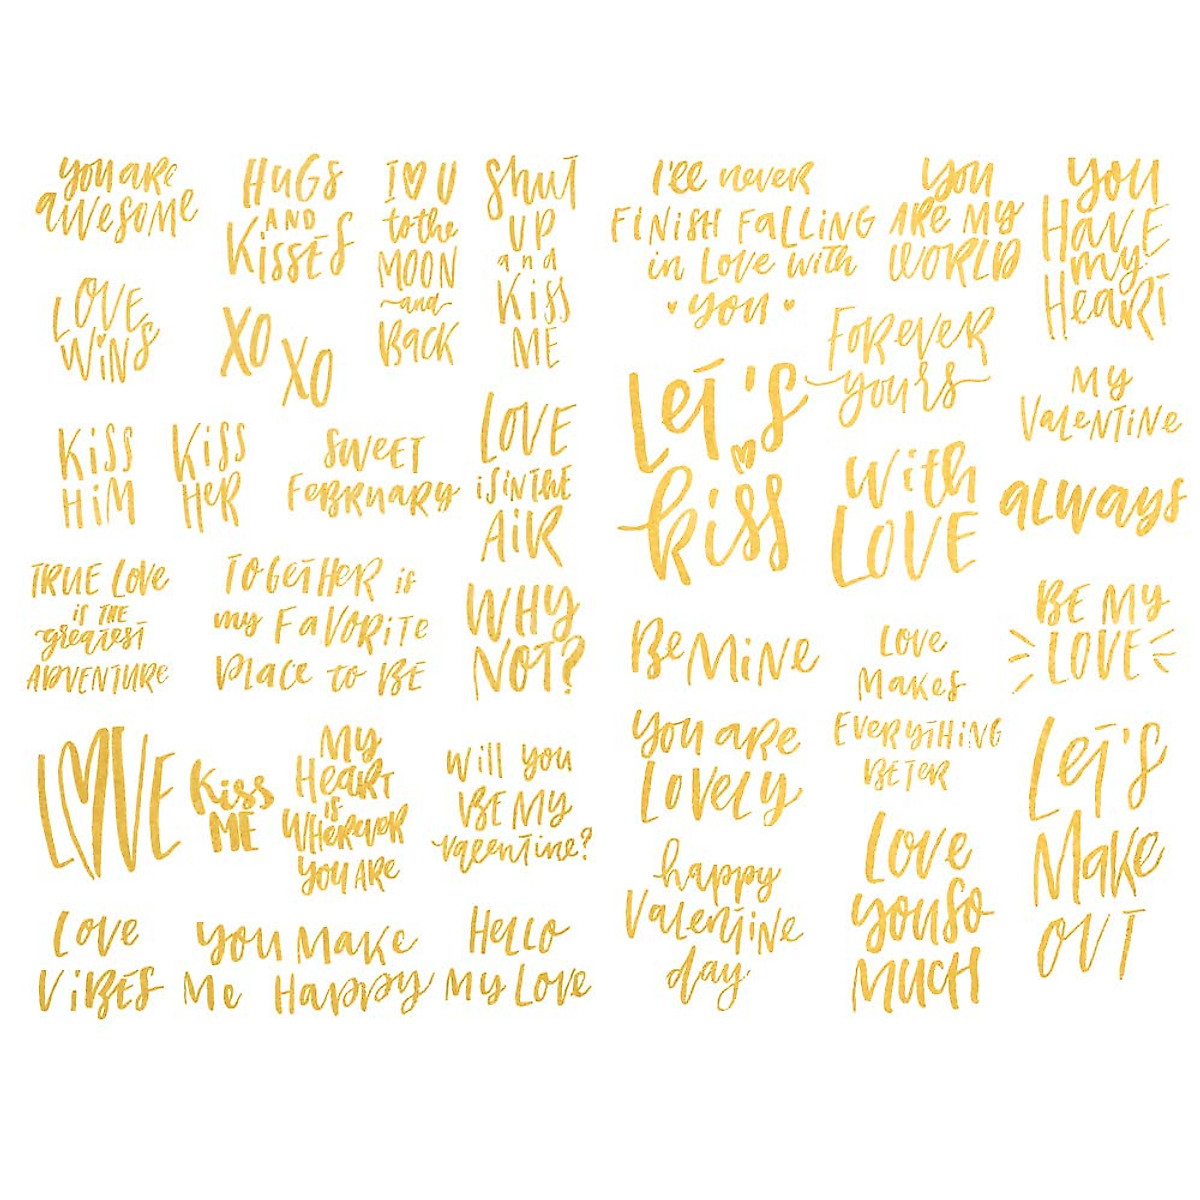 You are
awesome
HUGS
AND
KISSES
I♥U
to the
MOON
and
BACK
Shut
UP
and
Kiss
ME
LOVE
WINS
XO
XO
KISS
HIM
KISS
HER
SWEET
FEBRUARY
LOVE
IS IN THE
AIR
TRUE LOVE
is THE
greatest
ADVENTURE
TOGETHER is
my FAVORITE
PLACE to BE
WHY
NOT?
LOVE
Kiss
ME
MY
HEART
is
WHEREVER
YOU ARE
Will you
BE MY
valentine?
Love
VIBES
YOU MAKE
Me Happy
HELLO
MY LOVE
I'll never
FINISH FALLING
in Love with
♥ you ♥
You
ARE MY
WORLD
You
HAVE
my
Heart
Let's
kiss
FOREVER
yours
MY
VALENTINE
With
LOVE
always
Be Mine
Love
Makes
EVERYTHING
BETER
BE MY
LOVE
You are
Lovely
happy
Valentine
day
Love
you so
MUCH
Let's
Make
OUT